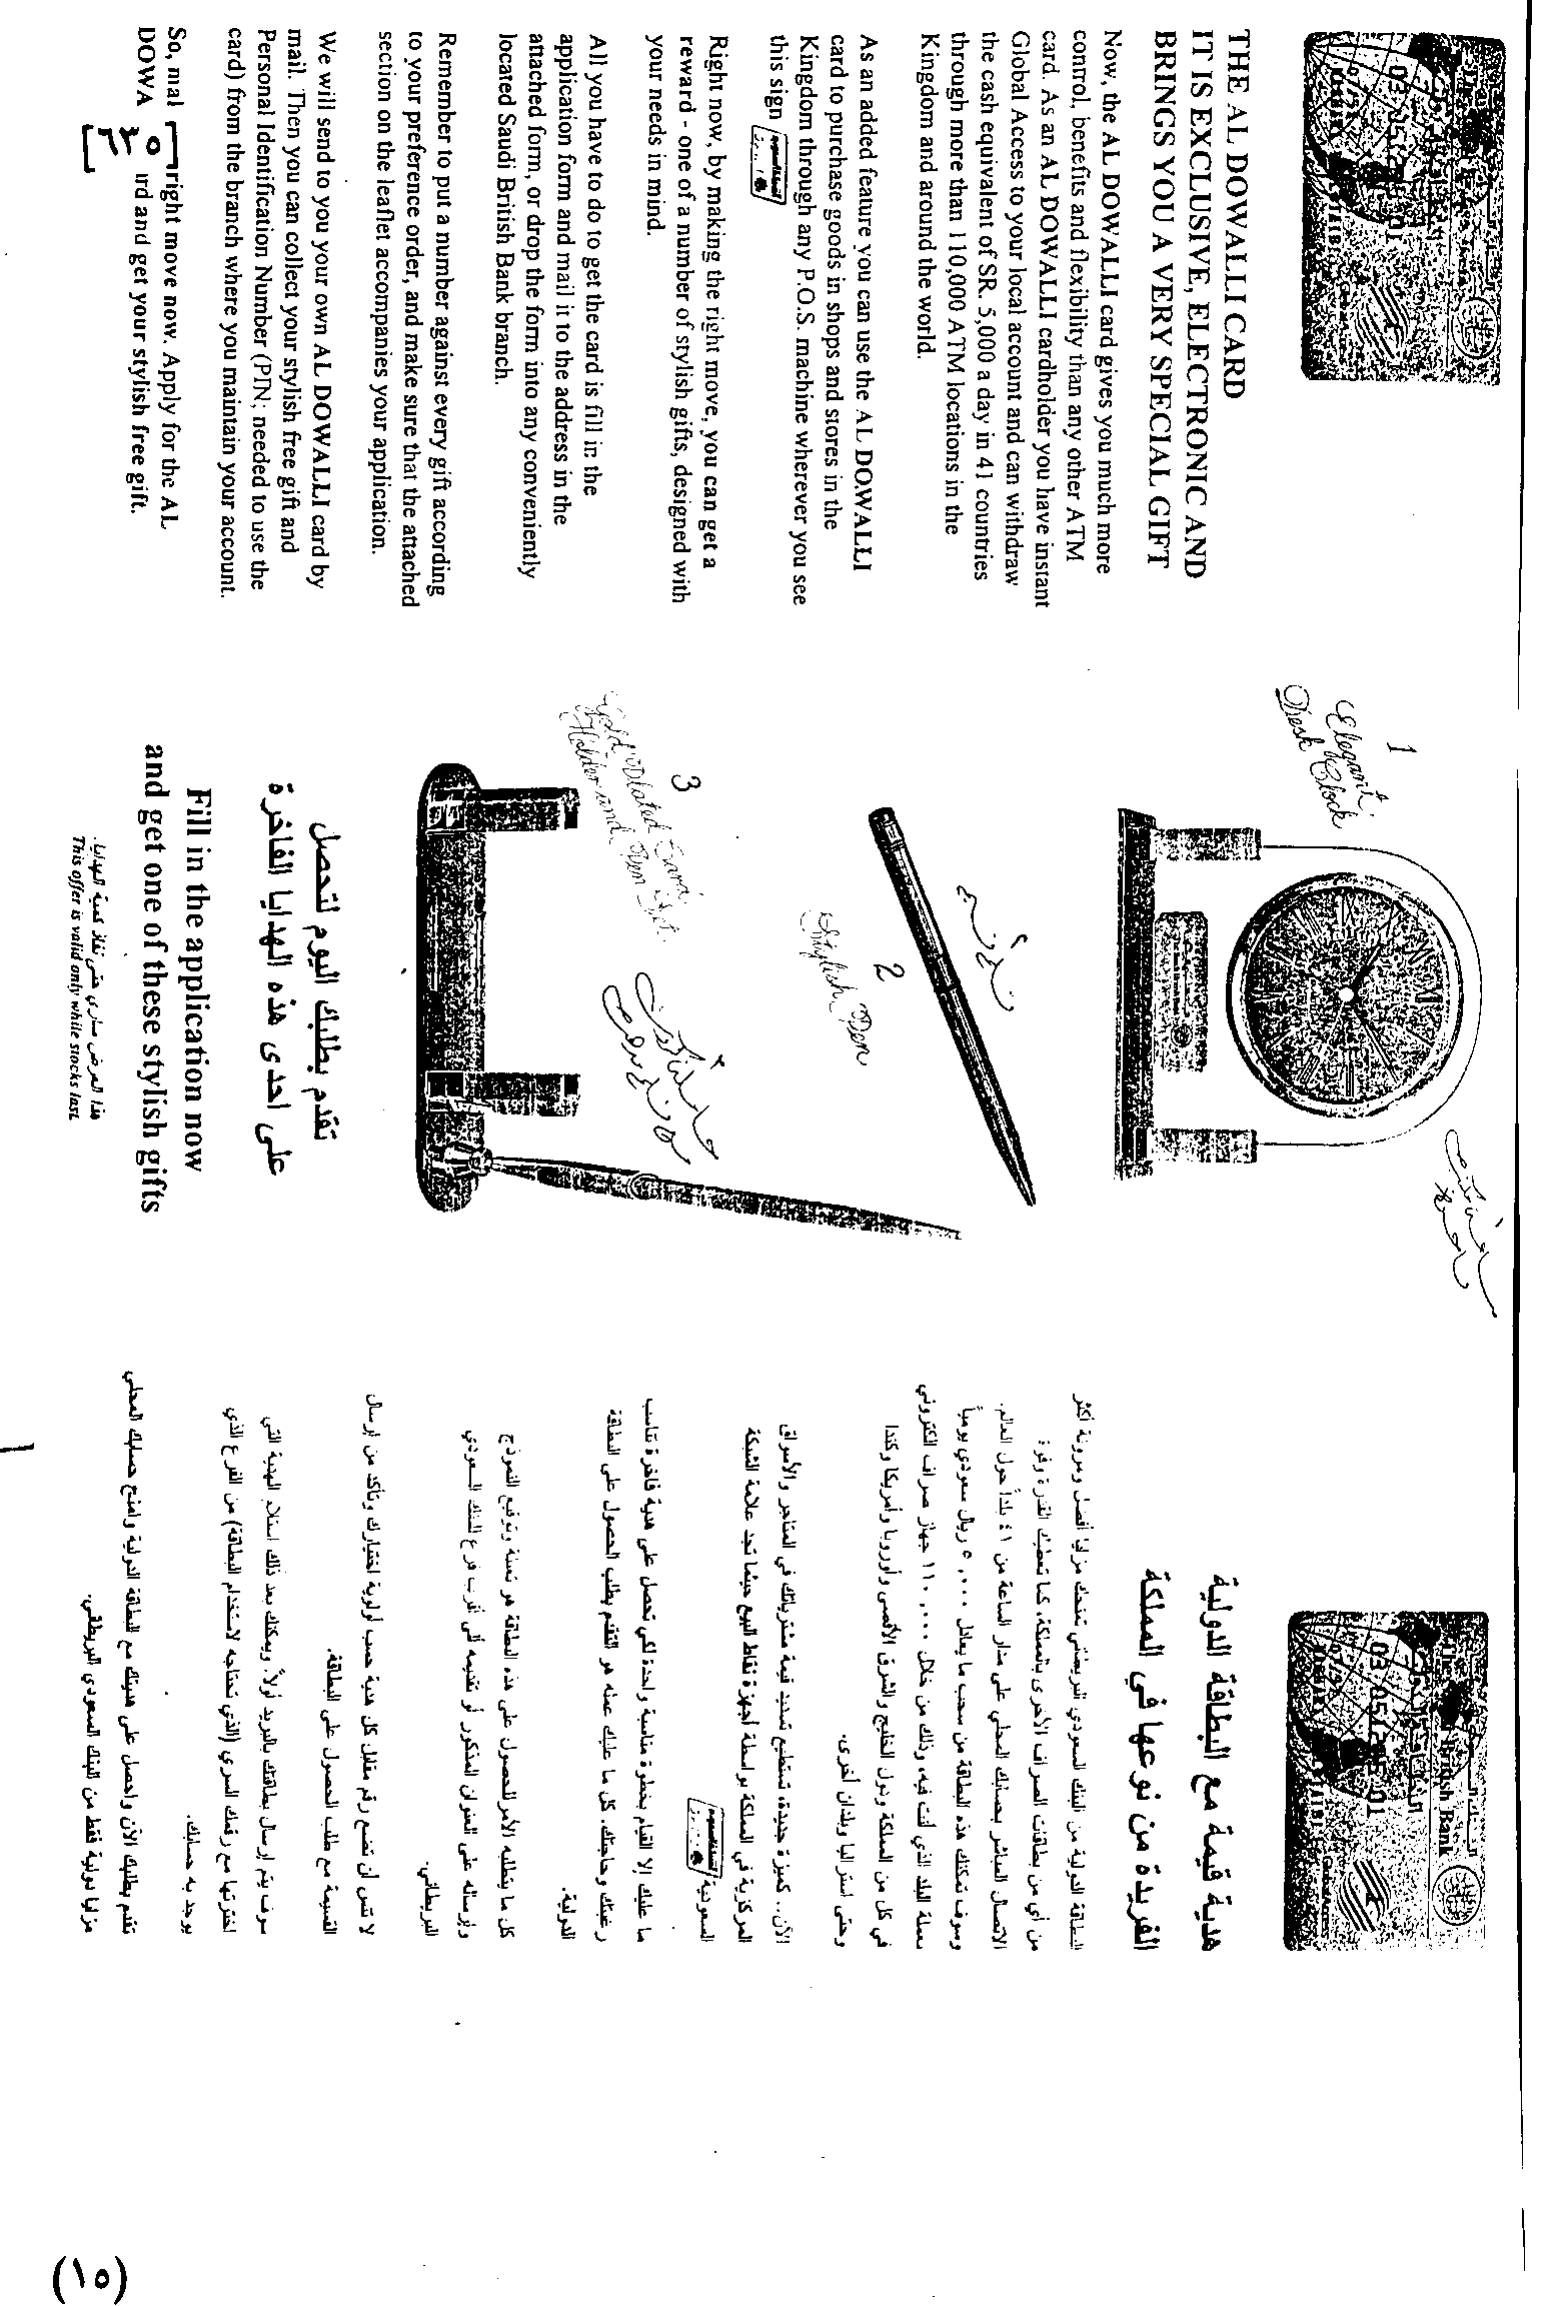 THE AL DOWALLI CARD
IT IS EXCLUSIVE, ELECTRONIC AND
BRINGS YOU A VERY SPECIAL GIFT
Now, the AL DOWALLI card gives you much more
control, benefits and flexibility than any other ATM
card. As an AL DOWALLI cardholder you have instant
Global Access to your local account and can withdraw
the cash equivalent of SR. 5,000 a day in 41 countries
through more than 110,000 ATM locations in the
Kingdom and around the world.
As an added feature you can use the AL DOWALLI
card to purchase goods in shops and stores in the
Kingdom through any P.O.S. machine wherever you see
this sign
Right now, by making the right move, you can get a
reward - one of a number of stylish gifts, designed with
your needs in mind.
All you have to do to get the card is fill in the
application form and mail it to the address in the
attached form, or drop the form into any conveniently
located Saudi British Bank branch.
Remember to put a number against every gift according
to your preference order, and make sure that the attached
section on the leaflet accompanies your application.
We will send to you your own AL DOWALLI card by
mail. Then you can collect your stylish free gift and
Personal Identification Number (PIN; needed to use the
card) from the branch where you maintain your account.
So, mal right move now. Apply for the AL
DOWA ırd and get your stylish free gift.
[٦٢٥]
1
Elegant
Desk Clock
ساعة مكتب
2
Stylish Pen
3
Gold Plated
Holder and Pen Set.
تقدم بطلبك اليوم لتحصل
على احدى هذه الهدايا الفاخرة
Fill in the application now
and get one of these stylish gifts
هذا العرض ساري حتى نفاذ كمية الهدايا.
This offer is valid only while stocks last
هدية قيمة مع البطاقة الدولية
الفريدة من نوعها في المملكة
البطاقة الدولية من البنك السعودي البريطاني تمنحك مزايا أفضل ومرونة أكثر
من أي من بطاقات الصراف الأخرى بالمملكة، كما تعطيك القدرة وقوة
الاتصال المباشر بحسابك المحلي على مدار الساعة من ٤١ بلداً حول العالم.
وسوف تمكنك هذه البطاقة من سحب ما يعادل ٥,٠٠٠ ريال سعودي يومياً
بعملة البلد الذي أنت فيه، وذلك من خلال ١١٠,٠٠٠ جهاز صراف الكتروني
في كل من المملكة ودول الخليج والشرق الأقصى وأوروبا وأمريكا وكندا
وحتى استراليا وبلدان أخرى.
الآن.. كميزة جديدة، تستطيع تسديد قيمة مشترياتك في المتاجر والأسواق
المركزية في المملكة بواسطة أجهزة نقاط البيع حيثما تجد علامة الشبكة
السعودية
ما عليك إلا القيام بخطوة مناسبة واحدة لكي تحصل على هدية فاخرة تناسب
رغبتك وحاجتك. كل ما عليك عمله هو التقدم بطلب الحصول على البطاقة
الدولية.
كل ما يتطلبه الأمر للحصول على هذه البطاقة هو تعبئة وتوقيع النموذج
وإرساله على العنوان المذكور أو تقديمه إلى أقرب فرع للبنك السعودي
البريطاني.
لا تنس أن تضع رقم مقابل كل هدية حسب أولوية اختيارك وتأكد من إرسال
القسيمة مع طلب الحصول على البطاقة.
سوف يتم إرسال بطاقتك بالبريد أولاً. ويمكنك بعد ذلك استلام الهدية التي
اخترتها مع رقمك السري (الذي تحتاجه لاستخدام البطاقة) من الفرع الذي
يوجد به حسابك.
تقدم بطلبك الآن واحصل على هديتك مع البطاقة الدولية وامنح حسابك المحلي
مزايا دولية فقط من البنك السعودي البريطاني.
(١٥)